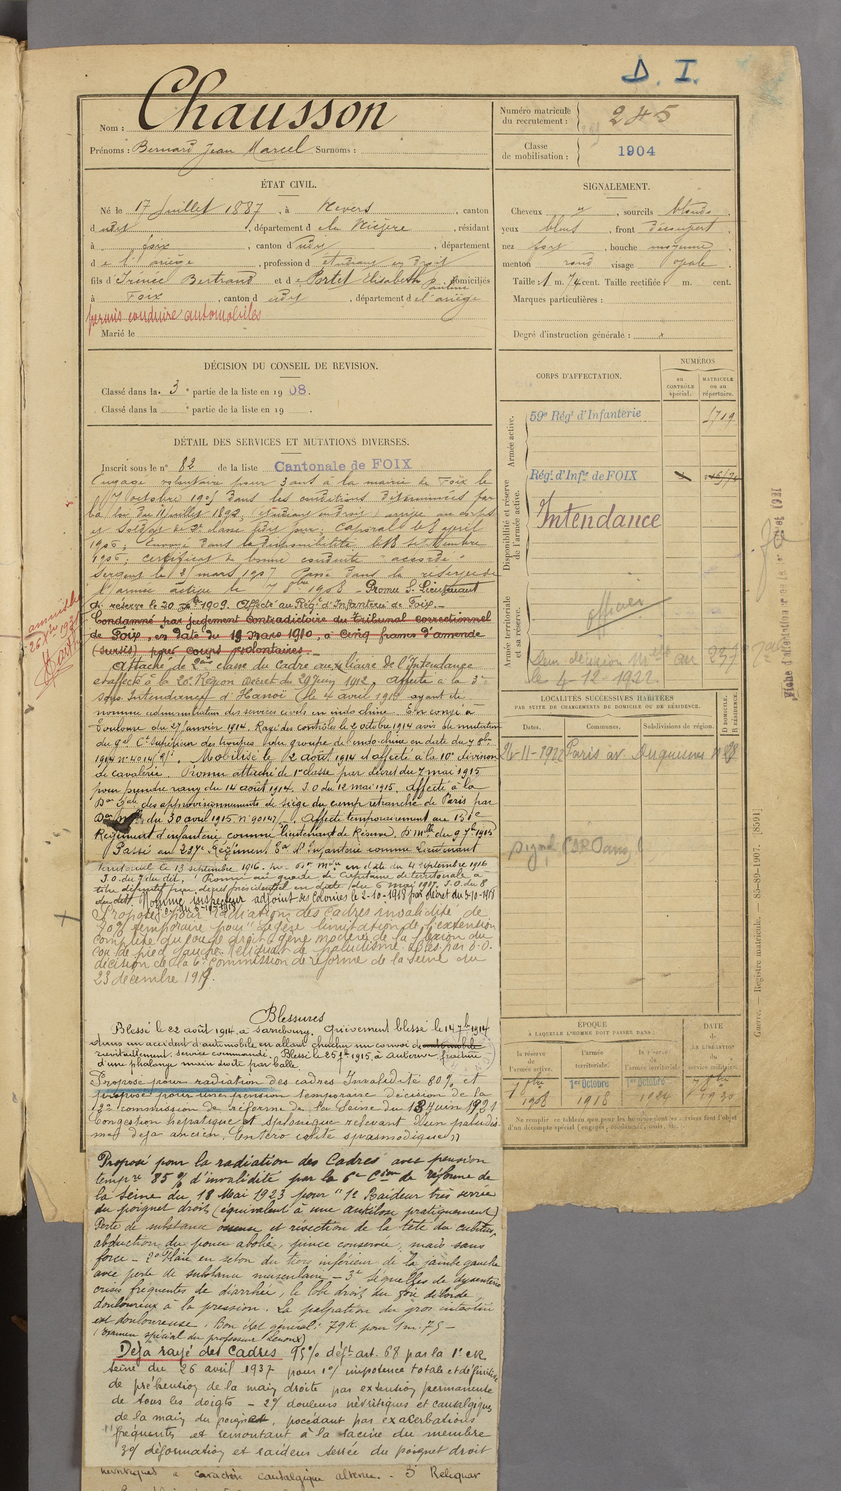 D. I.
Nom : Chausson
Prénoms : Bernard Jean Marcel Surnoms :
Numéro matricule du recrutement : 245
Classe de mobilisation : 1904
ÉTAT CIVIL.
Né le 17 Juillet 1887, à Nevers, canton
dudit, département de la Nièvre, résidant
à Foix, canton dudit, département
de l'Ariège, profession d'étudiant en Droit
fils d'Irénée Bertrand et de Portet Elisabeth Pauline domiciliés
à Foix, canton dudit, département de l'Ariège
permis conduire automobiles
Marié le
SIGNALEMENT.
Cheveux, sourcils blonds,
yeux bleus, front découvert,
nez fort, bouche moyenne,
menton rond visage ovale
Taille 1 m. 74 cent. Taille rectifiée m. cent.
Marques particulières :
Degré d'instruction générale :
DÉCISION DU CONSEIL DE REVISION.
Classé dans la 3e partie de la liste en 1908.
Classé dans la e partie de la liste en 19 .
CORPS D'AFFECTATION.
NUMÉROS
AU CONTRÔLE spécial.
MATRICULE OU AU répertoire.
Armée active.
59e Régt d'Infanterie 1719
Disponibilité et réserve de l'armée active.
Régt d'Infie de FOIX
Intendance
Armée territoriale et sa réserve.
officier
le 4-12-1922.
DÉTAIL DES SERVICES ET MUTATIONS DIVERSES.
Inscrit sous le n° 82 de la liste Cantonale de FOIX
Engagé volontaire pour 3 ans à la mairie de Foix le
7 octobre 1905 dans les conditions déterminées par
la loi du 11 juillet 1892, étudiant en droit arrivé au corps
et soldat de 2e classe ledit jour. Caporal le 8 avril
1906; Envoyé dans la disponibilité le 18 septembre
1906; certificat de bonne conduite "accordé"
Sergent le 12 mars 1907. Passé dans la réserve de
l'armée active le 7 8bre 1908 - Promu S. Lieutenant
de réserve le 20 Xbre 1909. Affecté au Régt d'Infanterie de Foix.
Condamné par jugement contradictoire du tribunal correctionnel
de Foix, en date du 19 Mars 1910, à cinq francs d'amende
(sursis) pour coups volontaires.
Attaché de 2me classe du cadre auxiliaire de l'Intendance
et affecté à la 20e Région Décret du 29 juin 1912. Affecté à la 3e
sous Intendance d'Hanoï le 4 avril 1913 ayant été
nommé administrateur des services civils en indo chine. En congé à
Toulouse du 27 janvier 1914. Rayé des contrôles le 2 octobre 1914 avis de mutation
du gal Ct supérieur des troupes du groupe de l'indo-chine en date du 7 8bre
1914 n° 4014. Mobilisé le 2 août 1914 et affecté à la 10e division
de cavalerie. Promu attaché de 1re classe par décret du 7 mai 1915
pour prendre rang du 14 août 1914. J.O du 12 mai 1915. Affecté à la
Don Gale des approvisionnements de siège du camp retranché de Paris par
Don Melle du 30 avril 1915 n° 90147. Affecté temporairement au
Régiment d'infanterie comme lieutenant de Réserve.
Passé au 237e Régiment d'Infanterie comme Lieutenant
territorial le 13 septembre 1916. en date du 4 septembre 1916
J.O. du 7 du dit. Promu au grade de Capitaine de territoriale à
titre définitif par décret présidentiel en date du 6 mai 1917. J.O. du 8
du dit. Nommé inspecteur adjoint des Colonies le 2-10-1918 par décret du 2-10-1918
Proposé pour radiation des cadres invalidité de
10% temporaire pour "légère limitation de l'extension
complète du coude droit - gêne modérée de la flexion du
cou de pied gauche. Reliquat de paludisme.
décision de la 6e commission de réforme de la Seine du
23 décembre 1919.
LOCALITÉS SUCCESSIVES HABITÉES
PAR SUITE DE CHANGEMENTS DE DOMICILE OU DE RÉSIDENCE.
Dates. Communes. Subdivisions de région. D DOMICILE. R RÉSIDENCE.
24-11-1922 Paris av. Duquesne n°
ÉPOQUE
À LAQUELLE L'HOMME DOIT PASSER DANS :
la réserve de l'armée active. l'armée territoriale. la réserve de l'armée territoriale.
DATE de LA LIBÉRATION du service militaire.
1er 8bre 1908 1er Octobre 1918 1er Octobre 1924 7 8bre 1930
Guerre. — Registre matricule. — 85-89-1907. [8591]
Blessures
Blessé le 22 août 1914 à Sarrebourg. Grièvement blessé le 14 7bre 1914
dans un accident d'automobile en allant chercher un convoi de
ravitaillement service commandé. Blessé le 25 1915 à Auberive fracture
d'une phalange main droite par balle.
Proposé pour radiation des cadres Invalidité 80% et
proposé pour une pension temporaire décision de la
2e commission de réforme de la Seine du 13 juin 1921
Congestion hépatique et splénique relevant d'un paludisme
déjà ancien. Entéro colite spasmodique
Proposé pour la radiation des Cadres avec pension
tempre 85% d'invalidité par la 6e Cion de réforme de
la Seine du 18 Mai 1923 pour "1° Raideur très serrée
du poignet droit (équivalent à une ankylose pratiquement)
Perte de substance osseuse et résection de la tête du cubitus,
abduction du pouce abolie, pince conservée, mais sans
force - 2° Plaie en séton du tiers inférieur de la jambe gauche
avec perte de substance musculaire - 3° Séquelles de dysenterie
crises fréquentes de diarrhée, le lobe droit du foie déborde,
douloureux à la pression. La palpation du gros intestin
est douloureuse. Bon état général: 79k pour 1m.75 -
(Examen spécial du professeur Lenoux)
Déjà rayé des Cadres 95% déft art. 68 par la 1e CR
Seine du 26 avril 1937 pour 1°/ impotence totale et définitive
de préhension de la main droite par extension permanente
de tous les doigts - 2°/ douleurs névritiques et causalgiques
de la main du poignet, procédant par exacerbations
fréquentes et remontant à la racine du membre
3°/ déformation et raideur serrée du poignet droit
névritiques à caractère causalgique - 5° Reliquat